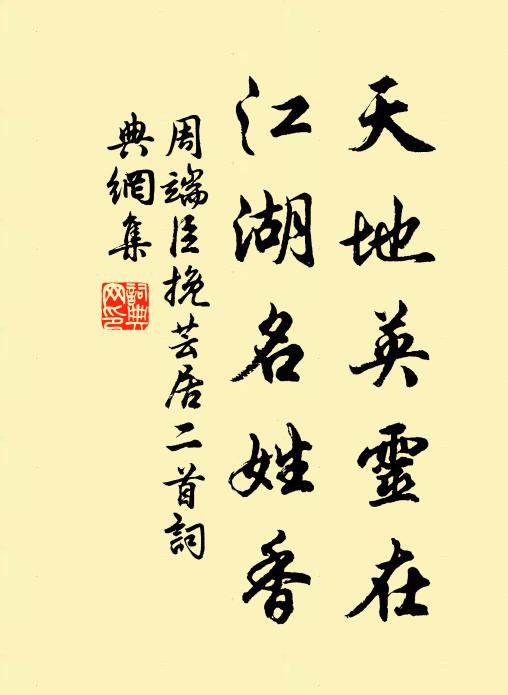 天地英靈在
江湖名姓香
周端臣挽芸居二首詞
典網集
詞典網印